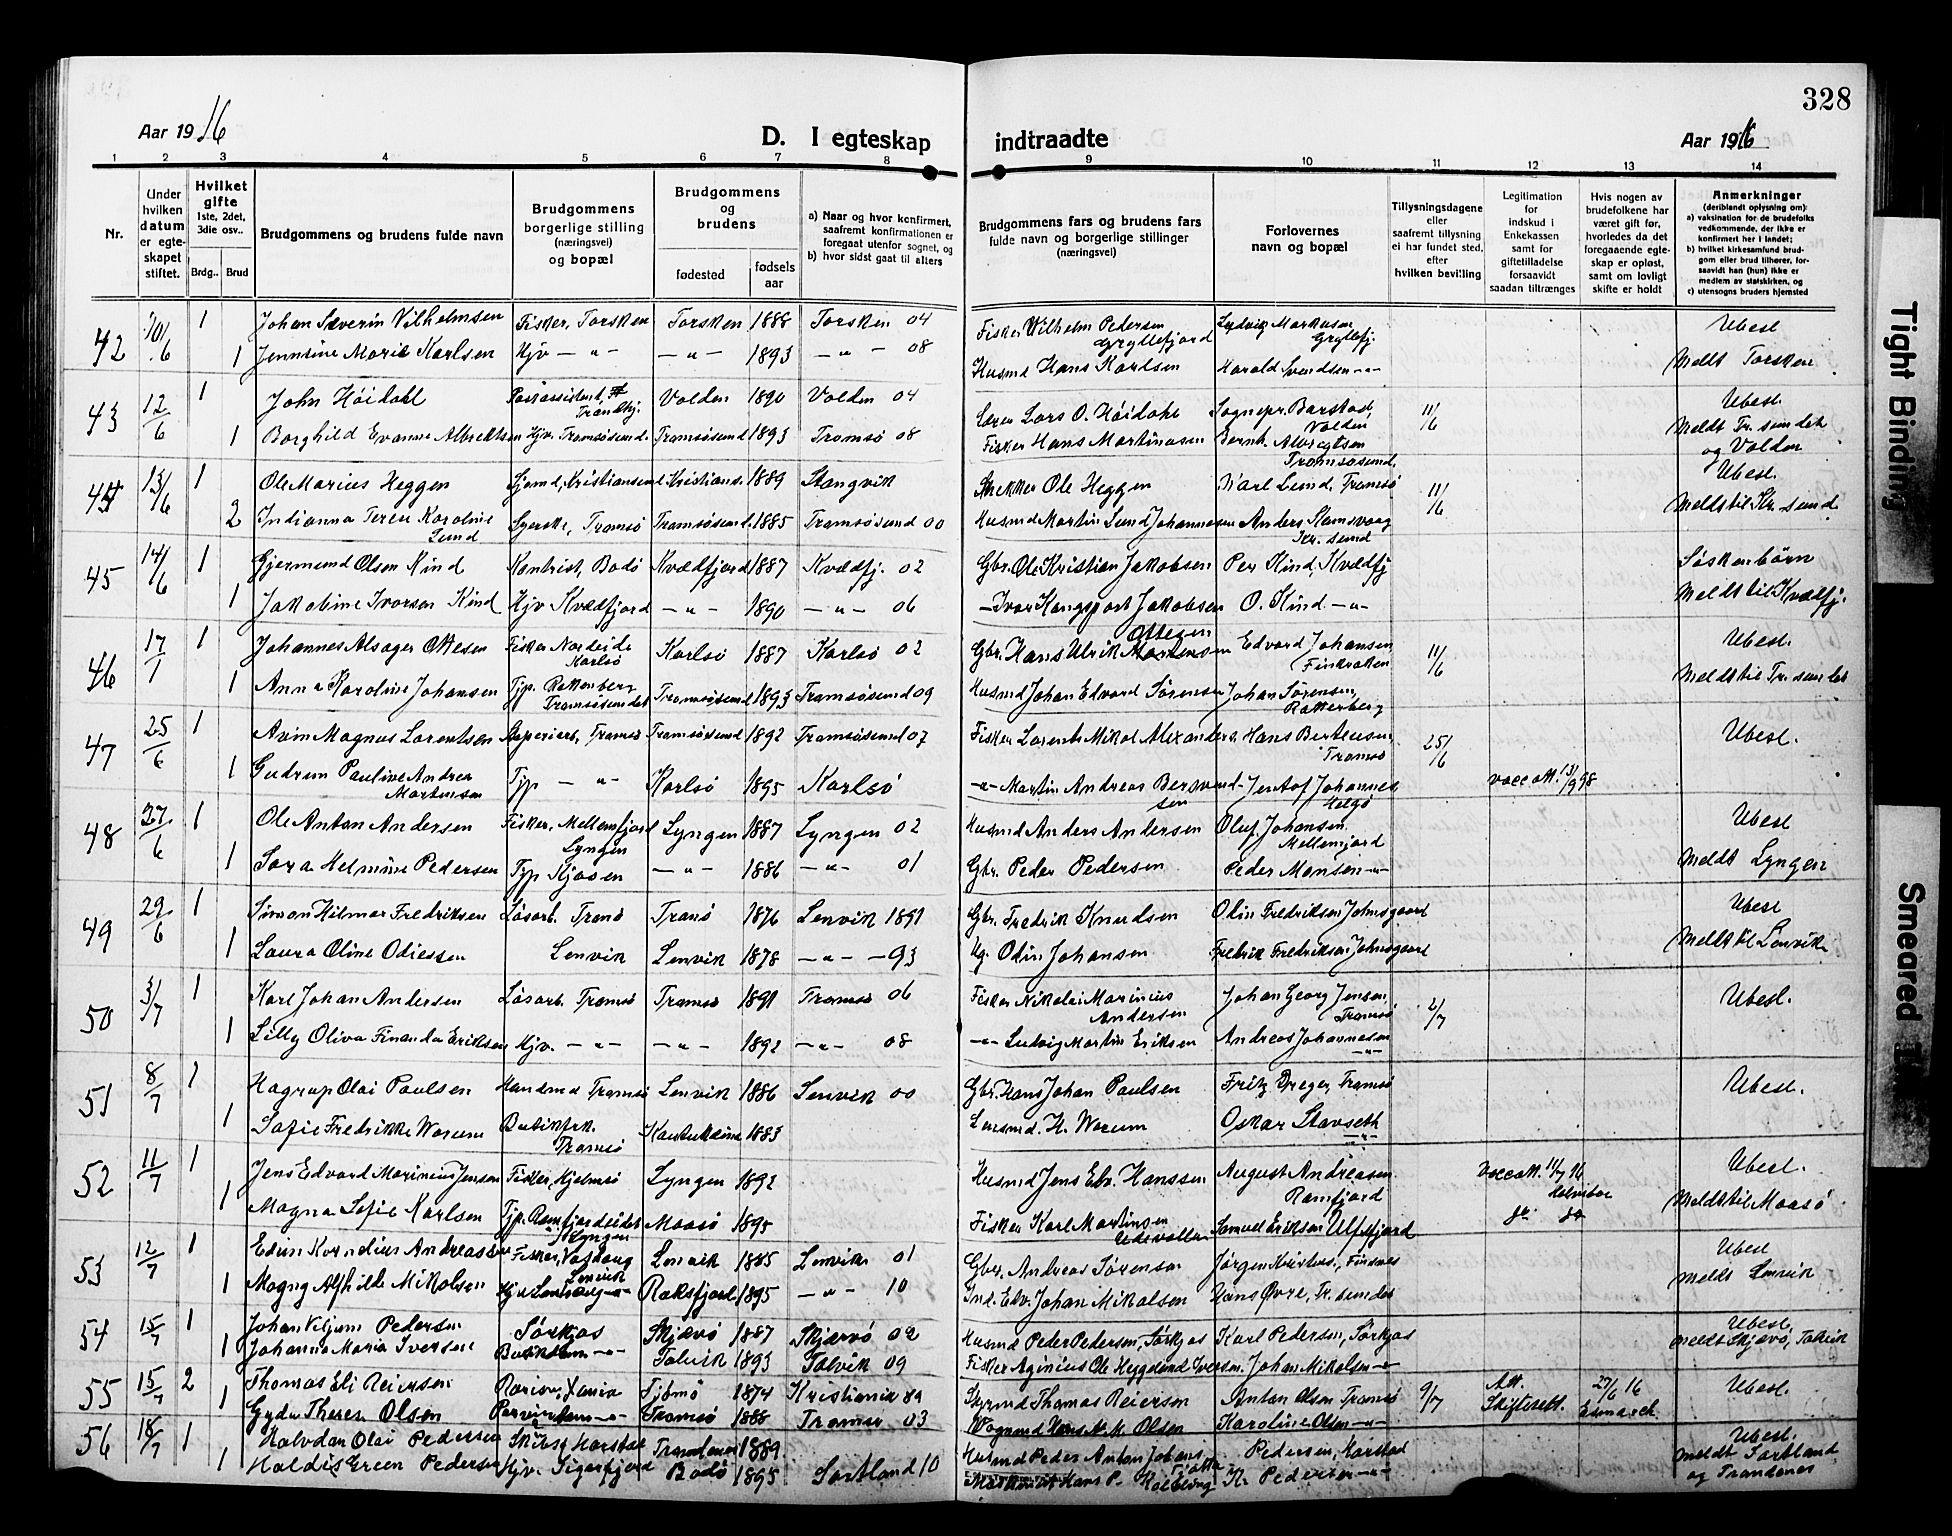 328
Aar 1916
D. I egteskap
indtraadte
Aar 1916
1 2 3 4 5 6 7 8 9 10 11 12 13 14
Nr.
Under hvilken datum er egteskapet stiftet.
Hvilket gifte
1ste, 2det, 3die osv..
Brdg.. Brud
Brudgommens og brudens fulde navn
Brudgommens borgerlige stilling (næringsvei) og bopæl
Brudgommens og brudens
fødested
fødsels aar
a) Naar og hvor konfirmert, saafremt konfirmationen er foregaat utenfor sognet, og
b) hvor sidst gaat til alters
Brudgommens fars og brudens fars fulde navn og borgerlige stillinger (næringsvei)
Forlovernes navn og bopæl
Tillysningsdagene eller saafremt tillysning ei har fundet sted, efter hvilken bevilling
Legitimation for indskud i Enkekassen samt for giftetilladelse forsaavidt saadan tiltrænges
Hvis nogen av brudefolkene har været gift før, hvorledes da det foregaaende egteskap er opløst, samt om lovligt skifte er holdt
Anmerkninger
(deriblandt oplysning om):
a) vaksination for de brudefolks vedkommende, der ikke er konfirmert her i landet;
b) hvilket kirkesamfund brudgom eller brud tilhører, forsaavidt han (hun) ikke er medlem av statskirken, og
c) utensogns bruders hjemsted
42 10/6 1 Johan Severin Vilhelmsen Fisker, Torsken Torsken 1888 Torsken 04 Fisker Wilhelm Pedersen Gryllefjord Ludvig Markusen Gryllefj. Ubesl
1 Jennsine Marie Karlsen Hjv — „ — — „ — 1893 — „ — 08 Husmd Hans Karlsen Harald Svendsen — „ — Meldt Torsken
43 12/6 1 John Höidahl Postassistent, Trondhj. Volden 1890 Volden 04 Lærer Lars O. Höidahl Sognepr. Barstad, Volden 11/6 Ubesl
1 Borghild Evanna Albrektsen Hjv. Tromsøsund. Tromsøsund 1893 Tromsø 08 Fisker Hans Martinusen Bernh. Albrigtsen Tromsøsund. Meldt Tr. sundet og Volden
44 13/6 1 Ole Marius Heggen Sjømd, Kristiansund Kristians. 1889 Stangvik Snekker Ole Heggen Karl Lund, Tromsø 11/6 Ubesl.
2 Indianna Teren Karoline Lund Syerske, Tromsø Tromsøsund. 1885 Tromsøsund 00 Husmd Martin Lund Johannesen Anders Stamsvaag Kr. sund Meldt til Kr. sund
45 14/6 1 Gjermund Olsen Kind Kontrist, Bodø Kvædfjord 1887 Kvædfj. 02 Gbr. Ole Kristian Jakobsen Per Kind, Kvædfj Søskenbörn
1 Jakobine Ivorsen Kind Hjv Kvædfjord — „ — 1890 — „ — 06 — Ivar Kongsport Jakobsen O. Kind — „ — Meldt til Kvædfj.
46 17/1 1 Johannes Alsager Ottesen Fisker Nordeide Karlsø Karlsø 1887 Karlsø 02 Gbr. Hans Ulrik Ottesen Edvard Johansen, Finkroken 11/6 Ubesl.
1 Anna Karoline Johansen Tjp. Rottenberg Tromsøsundet Tromsøsund 1893 Tromsøsund 09 Husmd Johan Edvard Sørensen Johan Sørensen, Rottenberg Meldt til Tr. sundet
47 25/6 1 Arvin Magnus Lorentsen Reperiarb. Tromsø Tromsøsund 1892 Tromsøsund 07 Fisker Lorents Mikal Alexanders. Hans Berteusen, Tromsø 25/6 Ubesl.
1 Gudrun Pauline Andrea Martinsen Tjp — „ — Karlsø 1895 Karlsø — „ — Martin Andreas Bersvendsen Jentof Johannes. Helgø vaccatt. 13/9 98
48 27/6 1 Ole Anton Andersen Fisker, Mellemfjord Lyngen Lyngen 1887 Lyngen 02 Husmd Anders Andersen Oluf Johansen Mellemjord Ubesl
1 Sara Helmine Pedersen Tjp Kjosen — „ — 1886 — „ — 01 Gbr. Peder Pedersen Peder Monsen — „ — Meldt Lyngen
49 29/6 1 Simon Hilmar Fredriksen Løsarb. Tranø Tranø 1876 Lenvik 1891 Gbr. Fredrik Knudsen Odin Fredriksen Johnsgaard Ubesl
1 Laura Oline Odiessen Lenvik Lenvik 1878 — „ — 93 Ug. Odin Johansen Fredrik Fredriksen Johnsgaard Meldt til Lenvik
50 3/7 1 Karl Johan Andersen Løsarb. Tromsø Tromsø 1891 Tromsø 06 Fisker Nikolai Marinius Andersen Johan Georg Jensen, Tromsø 2/7 Ubesl.
1 Lilly Oliva Finanda Eriksen Hjv. — „ — — „ — 1892 — „ — 08 — „ — Ludvig Martin Eriksen Andreas Johannesen — „ —
51 8/7 1 Hagrup Olai Paulsen Handmd Tromsø Lenvik 1886 Lenvik 00 Gbr. Hans Johan Paulsen Fritz Dreyer, Tromsø Ubesl.
1 Sofie Fredrikke Worum Butikfrk. Tromsø Kautokeino 1883 Lensmd. H. Worum Oskar Stavseth — „ —
52 11/7 1 Jens Edvard Marinius Jensen Fisker, Hjelmsø Lyngen 1892 Husmd Jens Edv. Hanssen August Andreasen Ramfjord Vaccatt. 11/7 16 Ubesl.
1 Magna Sofie Karlsen Tjp. Ramfjordeidet Maasø 1895 Fisker Karl Martinsen Samuel Eriksen Ulfsfjord do do Meldt til Maasø
53 12/7 1 Edin Kornelius Andreassen Fisker, Lenvik Lenvik 1885 Lenvik 01 Gbr. Andreas Sørensen Jørgen Kristens., Finsnes Ubesl
1 Magny Alfhilde Mikalsen Hjv Raksfjord 1895 — „ — 10 Ind. Edv. Johan Mikalsen Hans Øvre, Tr. sundet Meldt Lenvik
54 15/7 1 Johan Viljum Pedersen Sørkjos Skjævø 1887 Skjærvö 02 Husmd Peder Pedersen, Sørkjos Karl Pedersen, Sørkjos Ubesl,
1 Johanna Maria Iversen — „ — Talvik 1893 Talvik 09 Fisker Aginius Ole Heggelund Iversen. Johan Mikalsen — „ — Meldt Skjævø, Talvik
55 15/7 2 Thomas Eli Reiersen Tjømø 1874 Kristiania 89 Styrmd Thomas Reiersen Anton Olsen Tromsø 9/7 Att. Skifterett. 27/6 16 Esmarch Ubesl.
1 Gyda Therese Olsen — „ — Tromsø 1888 Tromsø 03 Vognmd Hans A. M. Olsen Karoline Olsen — „ —
56 18/7 1 Halvdan Olai Pedersen Harstad Trondenes 1889 Husmd Peder Anton Johans. Pedersen, Harstad Ubesl.
1 Haldis Green Pedersen Hjv. Sigerfjord Bodø 1895 Sortland 10 Maskinist Hans P. K. Pedersen — „ — Meldt Sortland og Trondenes
Tight Binding
Smeared